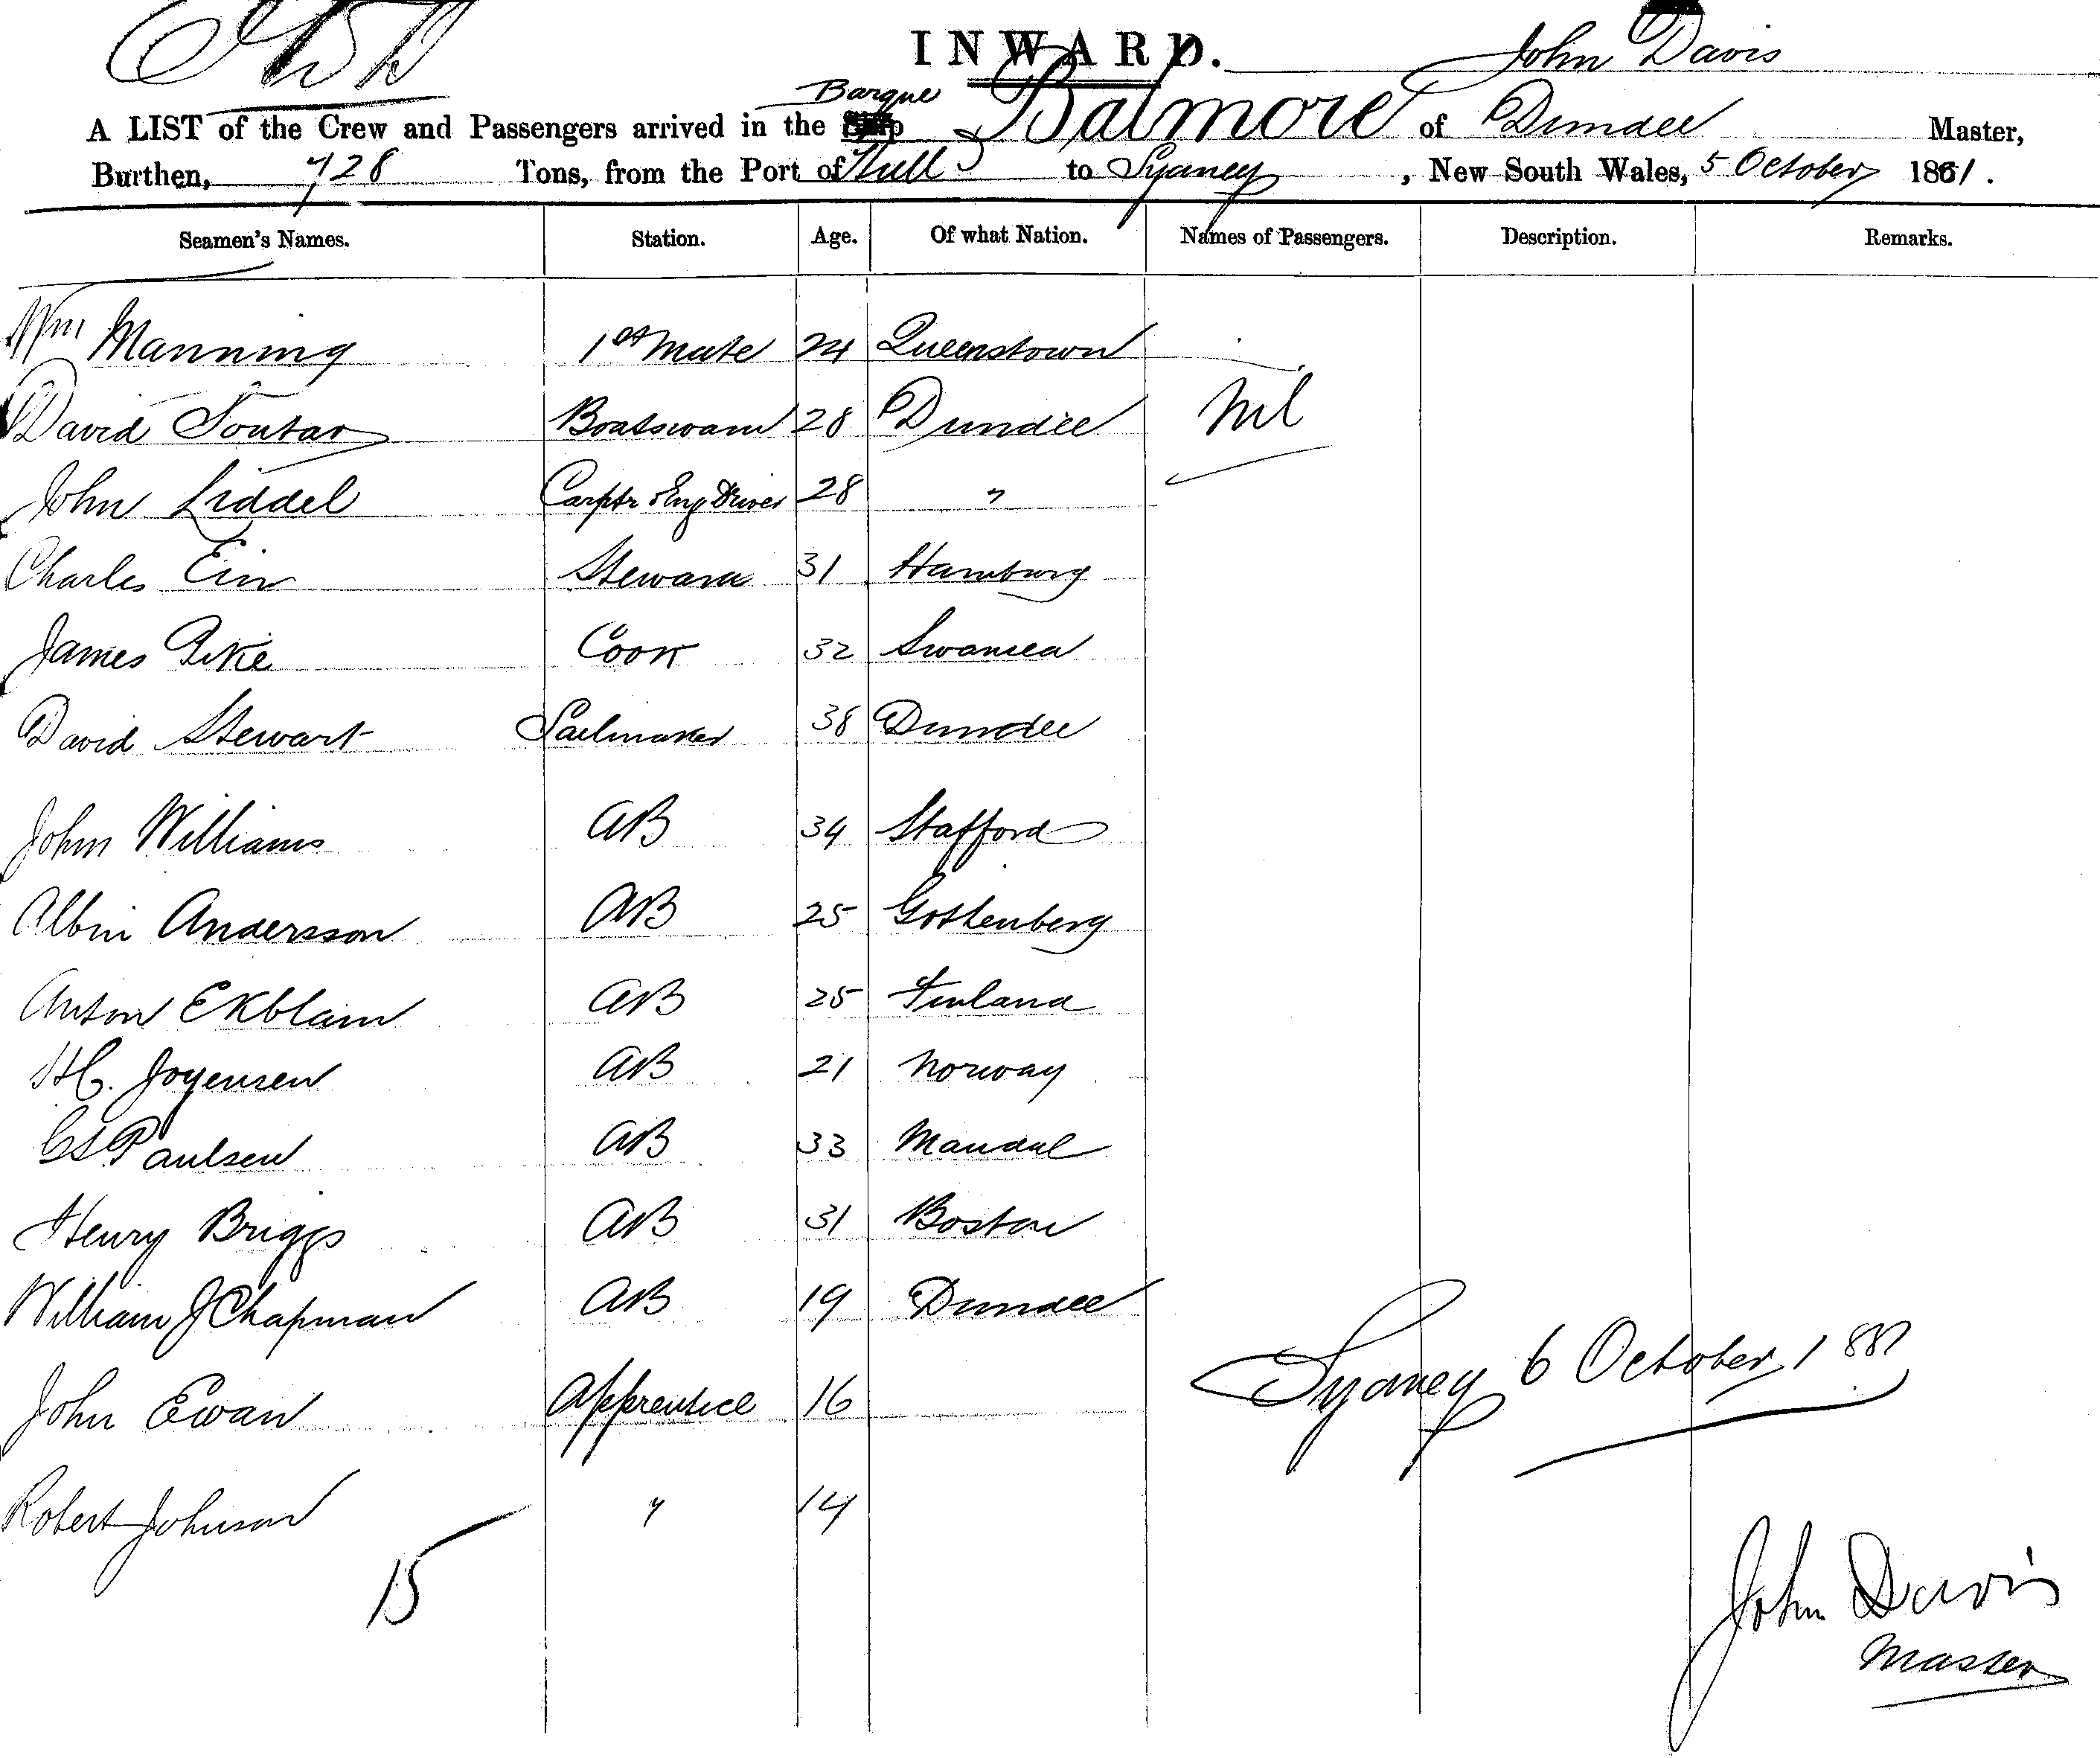 INWARD. John Davis
Barque
A LIST of the Crew and Passengers arrived in the Ship Balmore of Dundee Master,
Burthen, 728 Tons, from the Port of Hull to Sydney, New South Wales, 5 October 1881.
Seamen's Names. Station. Age. Of what Nation. Names of Passengers. Description. Remarks.
Wm Manning 1st Mate 24 Queenstown
David Soutar Boatswain 28 Dundee Nil
John Liddel Carptr & Eng Driver 28 "
Charles Steward 31 Hamburg
James Pike Cook 32 Swansea
David Stewart Sailmaker 38 Dundee
John Williams AB 34 Stafford
Albin Andersson AB 25 Gothenberg
Anton Ekblam AB 25 Finland
H C. Joyensen AB 21 Norway
Paulsen AB 33 Mandal
Henry Briggs AB 31 Boston
William J Chapman AB 19 Dundee
Sydney 6 October 1881
John Ewan Apprentice 16
Robert Johnson " 14
15
John Davis
Master